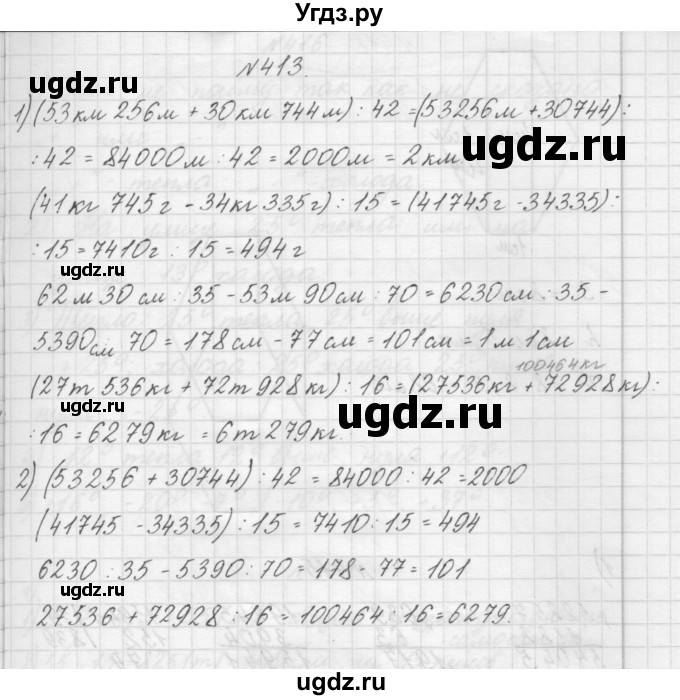 Угдз.ру
№413.
1) (53км 256м + 30км 744м) : 42 = (53256м + 30744) :
ugdz.ru
: 42 = 84000м : 42 = 2000м = 2км
ugdz.ru
(41кг 745г - 34кг 335г) : 15 = (41745г - 34335) :
: 15 = 7410г : 15 = 494г
ugdz.ru
62м 30см : 35 - 53м 90см : 70 = 6230см : 35 -
5390см 70 = 178см - 77см = 101см = 1м 1см
ugdz.ru
100464кг
(27т 536кг + 72т 928кг) : 16 = (27536кг + 72928кг) :
ugdz.ru
: 16 = 6279кг = 6т 279кг.
ugdz.ru
2) (53256 + 30744) : 42 = 84000 : 42 = 2000
(41745 - 34335) : 15 = 7410 : 15 = 494
ugdz.ru
6230 : 35 - 5390 : 70 = 178 - 77 = 101
ugdz.ru
27536 + 72928 : 16 = 100464 : 16 = 6279.
ugdz.ru